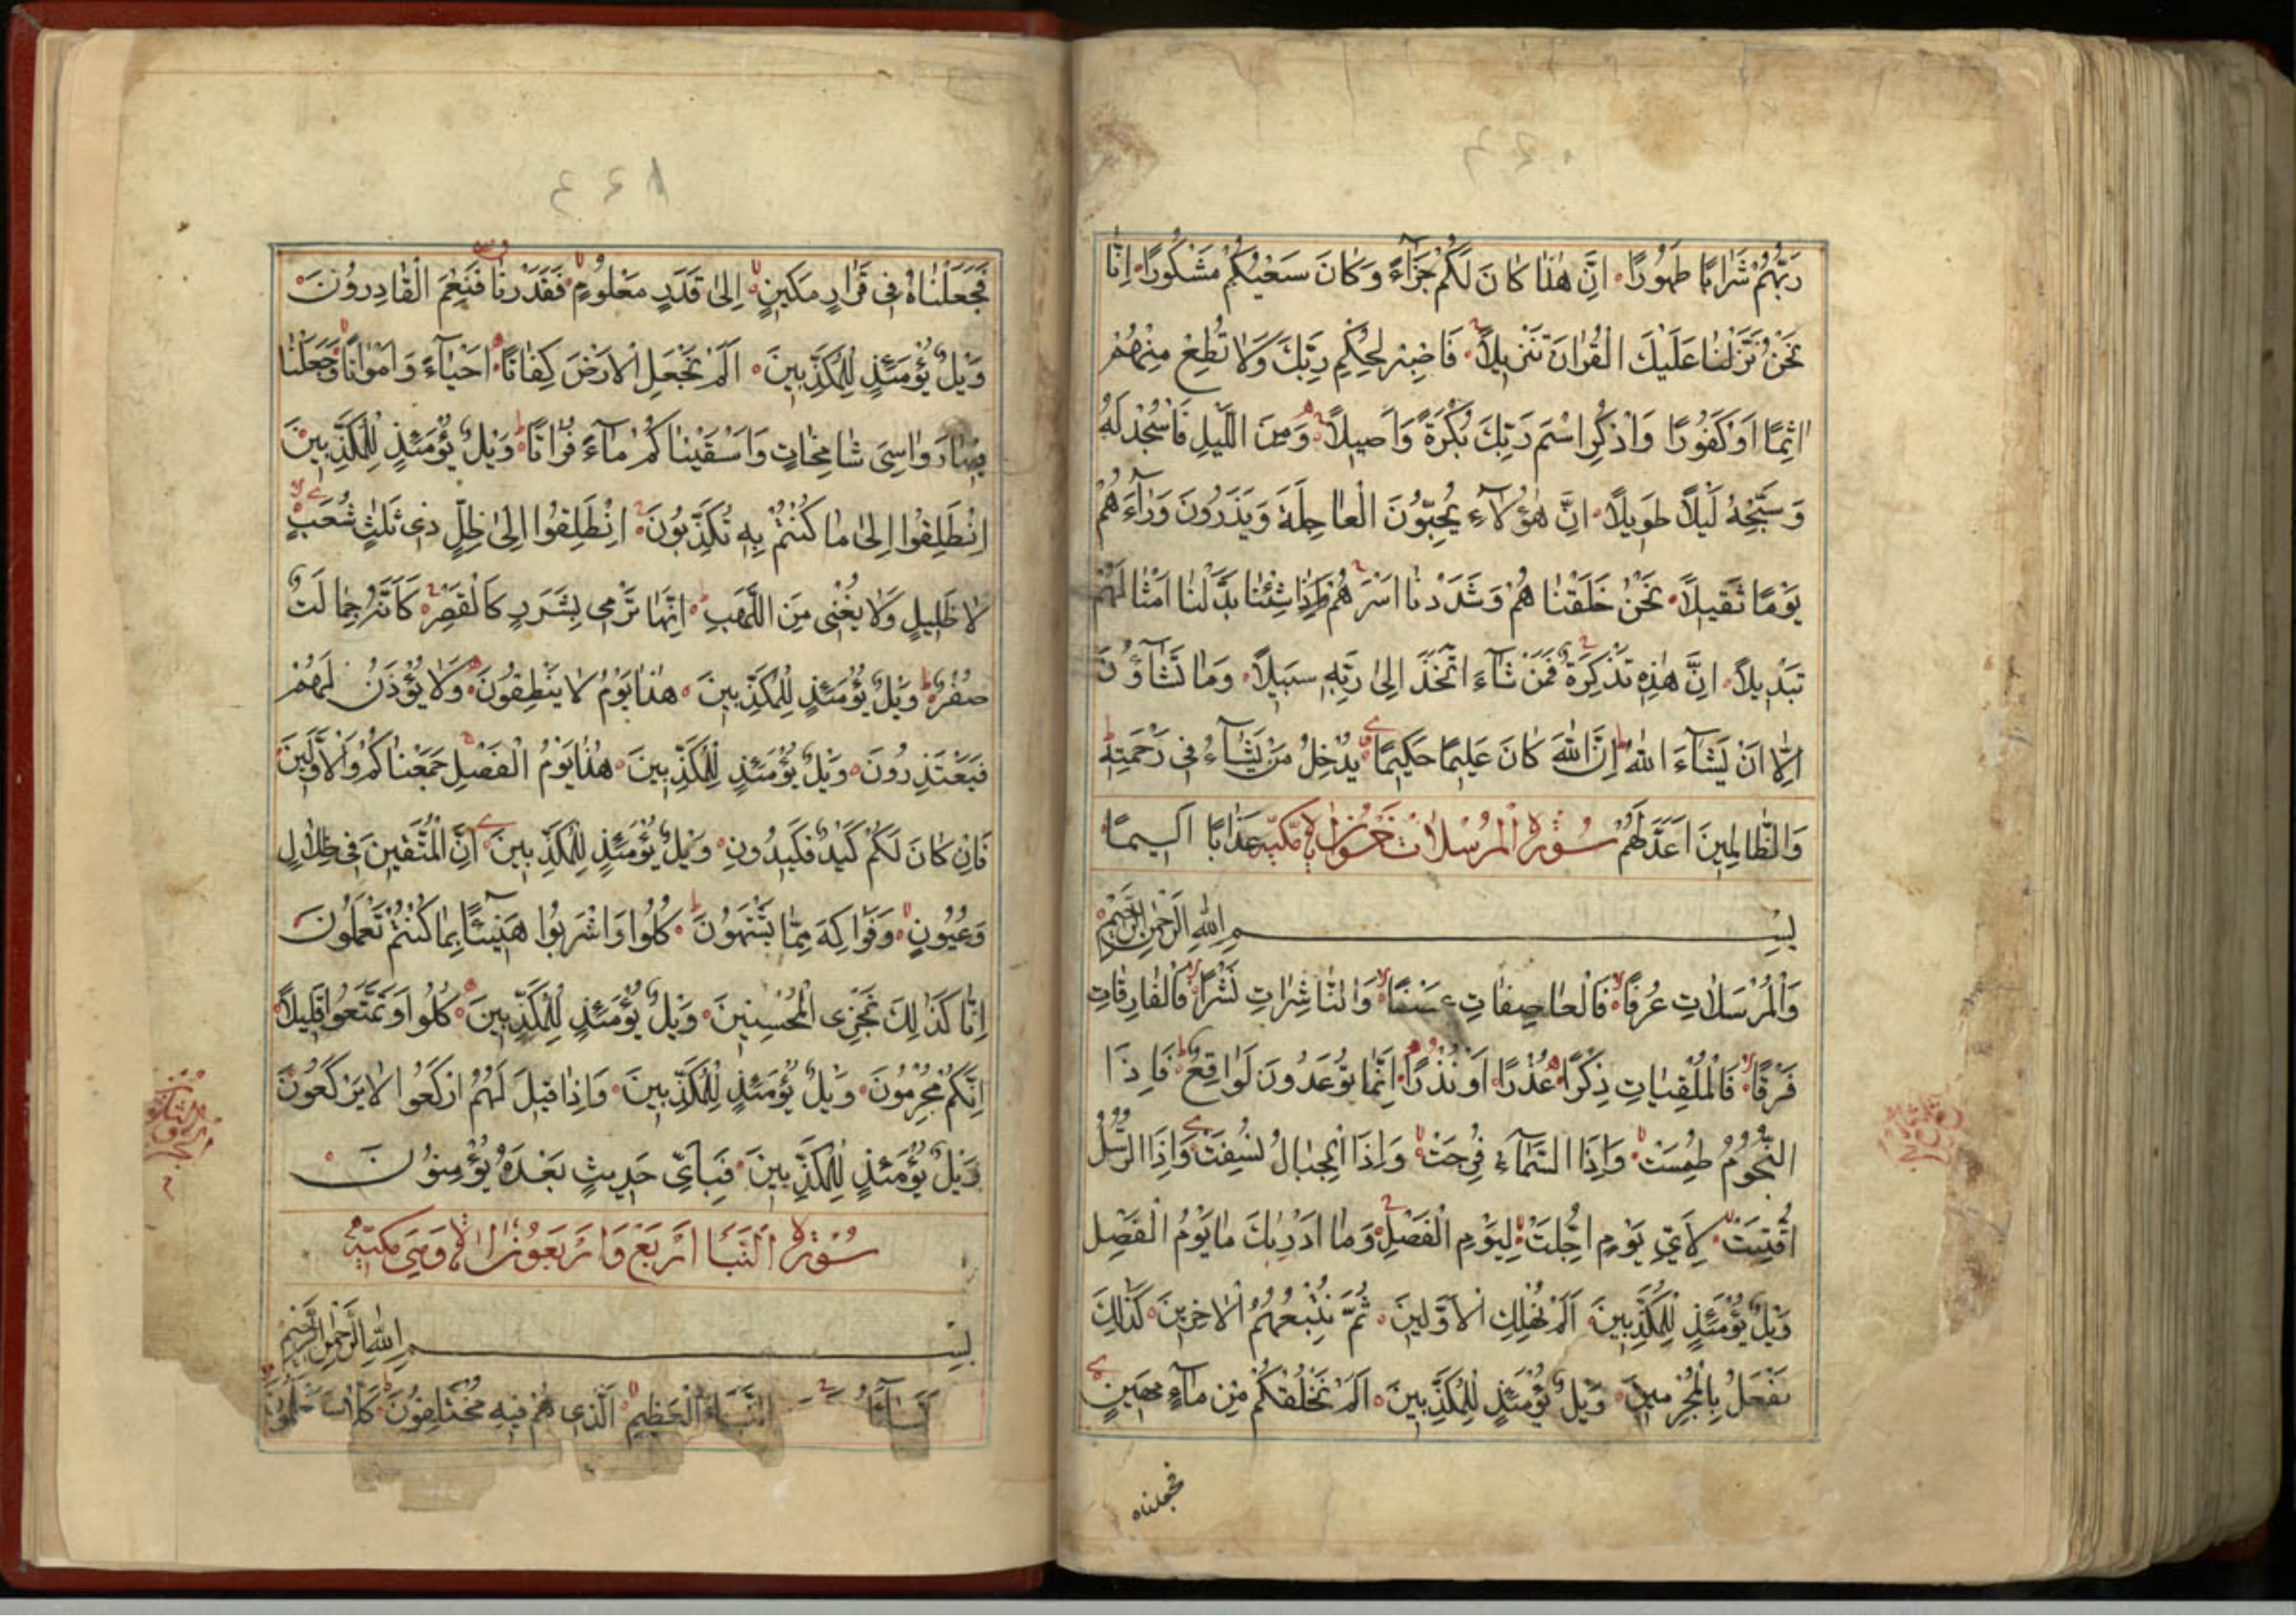 رَبُّهُمْ شَرَابًا طَهُورًا اِنَّ هٰذَا كَانَ لَكُمْ جَزَآءً وَكَانَ سَعْيُكُمْ مَشْكُورًا اِنَّا
نَحْنُ نَزَّلْنَا عَلَيْكَ الْقُرْاٰنَ تَنْزِيلًا فَاصْبِرْ لِحُكْمِ رَبِّكَ وَلَا تُطِعْ مِنْهُمْ
اٰثِمًا اَوْ كَفُورًا وَاذْكُرِ اسْمَ رَبِّكَ بُكْرَةً وَاَصِيلًا وَمِنَ اللَّيْلِ فَاسْجُدْ لَهُ
وَسَبِّحْهُ لَيْلًا طَوِيلًا اِنَّ هٰؤُلَآءِ يُحِبُّونَ الْعَاجِلَةَ وَيَذَرُونَ وَرَآءَهُمْ
يَوْمًا ثَقِيلًا نَحْنُ خَلَقْنَاهُمْ وَشَدَدْنَا اَسْرَهُمْ وَاِذَا شِئْنَا بَدَّلْنَا اَمْثَالَهُمْ
تَبْدِيلًا اِنَّ هٰذِهِ تَذْكِرَةٌ فَمَنْ شَآءَ اتَّخَذَ اِلٰى رَبِّهِ سَبِيلًا وَمَا تَشَآؤُنَ
اِلَّا اَنْ يَشَآءَ اللّٰهُ اِنَّ اللّٰهَ كَانَ عَلِيمًا حَكِيمًا يُدْخِلُ مَنْ يَشَآءُ فِى رَحْمَتِهِ
وَالظَّالِمِينَ اَعَدَّ لَهُمْ عَذَابًا اَلِيمًا سُورَةُ الْمُرْسَلَاتِ خَمْسُونَ اٰيَةً مَكِّيَّة
بِسْمِ اللّٰهِ الرَّحْمٰنِ الرَّحِيمِ
وَالْمُرْسَلَاتِ عُرْفًا فَالْعَاصِفَاتِ عَصْفًا وَالنَّاشِرَاتِ نَشْرًا فَالْفَارِقَاتِ
فَرْقًا فَالْمُلْقِيَاتِ ذِكْرًا عُذْرًا اَوْ نُذْرًا اِنَّمَا تُوعَدُونَ لَوَاقِعٌ فَاِذَا
النُّجُومُ طُمِسَتْ وَاِذَا السَّمَآءُ فُرِجَتْ وَاِذَا الْجِبَالُ نُسِفَتْ وَاِذَا الرُّسُلُ
اُقِّتَتْ لِاَيِّ يَوْمٍ اُجِّلَتْ لِيَوْمِ الْفَصْلِ وَمَا اَدْرٰيكَ مَا يَوْمُ الْفَصْلِ
وَيْلٌ يَوْمَئِذٍ لِلْمُكَذِّبِينَ اَلَمْ نُهْلِكِ الْاَوَّلِينَ ثُمَّ نُتْبِعُهُمُ الْاٰخِرِينَ كَذٰلِكَ
نَفْعَلُ بِالْمُجْرِمِينَ وَيْلٌ يَوْمَئِذٍ لِلْمُكَذِّبِينَ اَلَمْ نَخْلُقْكُمْ مِنْ مَآءٍ مَهِينٍ
فجعلناه
فَجَعَلْنَاهُ فِى قَرَارٍ مَكِينٍ اِلٰى قَدَرٍ مَعْلُومٍ فَقَدَرْنَا فَنِعْمَ الْقَادِرُونَ
وَيْلٌ يَوْمَئِذٍ لِلْمُكَذِّبِينَ اَلَمْ نَجْعَلِ الْاَرْضَ كِفَاتًا اَحْيَآءً وَاَمْوَاتًا وَجَعَلْنَا
فِيهَا رَوَاسِىَ شَامِخَاتٍ وَاَسْقَيْنَاكُمْ مَآءً فُرَاتًا وَيْلٌ يَوْمَئِذٍ لِلْمُكَذِّبِينَ
اِنْطَلِقُوا اِلٰى مَا كُنْتُمْ بِهِ تُكَذِّبُونَ اِنْطَلِقُوا اِلٰى ظِلٍّ ذِى ثَلٰثِ شُعَبٍ
لَا ظَلِيلٍ وَلَا يُغْنِى مِنَ اللَّهَبِ اِنَّهَا تَرْمِى بِشَرَرٍ كَالْقَصْرِ كَاَنَّهُ جِمَالَتٌ
صُفْرٌ وَيْلٌ يَوْمَئِذٍ لِلْمُكَذِّبِينَ هٰذَا يَوْمُ لَا يَنْطِقُونَ وَلَا يُؤْذَنُ لَهُمْ
فَيَعْتَذِرُونَ وَيْلٌ يَوْمَئِذٍ لِلْمُكَذِّبِينَ هٰذَا يَوْمُ الْفَصْلِ جَمَعْنَاكُمْ وَالْاَوَّلِينَ
فَاِنْ كَانَ لَكُمْ كَيْدٌ فَكِيدُونِ وَيْلٌ يَوْمَئِذٍ لِلْمُكَذِّبِينَ اِنَّ الْمُتَّقِينَ فِى ظِلَالٍ
وَعُيُونٍ وَفَوَاكِهَ مِمَّا يَشْتَهُونَ كُلُوا وَاشْرَبُوا هَنِيئًا بِمَا كُنْتُمْ تَعْمَلُونَ
اِنَّا كَذٰلِكَ نَجْزِى الْمُحْسِنِينَ وَيْلٌ يَوْمَئِذٍ لِلْمُكَذِّبِينَ كُلُوا وَتَمَتَّعُوا قَلِيلًا
اِنَّكُمْ مُجْرِمُونَ وَيْلٌ يَوْمَئِذٍ لِلْمُكَذِّبِينَ وَاِذَا قِيلَ لَهُمُ ارْكَعُوا لَا يَرْكَعُونَ
وَيْلٌ يَوْمَئِذٍ لِلْمُكَذِّبِينَ فَبِاَىِّ حَدِيثٍ بَعْدَهُ يُؤْمِنُونَ
سُورَةُ النَّبَأِ اَرْبَعٌ وَاَرْبَعُونَ اٰيَةً وَهِىَ مَكِّيَّةٌ
بِسْمِ اللّٰهِ الرَّحْمٰنِ الرَّحِيمِ
النَّبَاءِ الْعَظِيمِ الَّذِى هُمْ فِيهِ مُخْتَلِفُونَ كَلَّا سَيَعْلَمُونَ